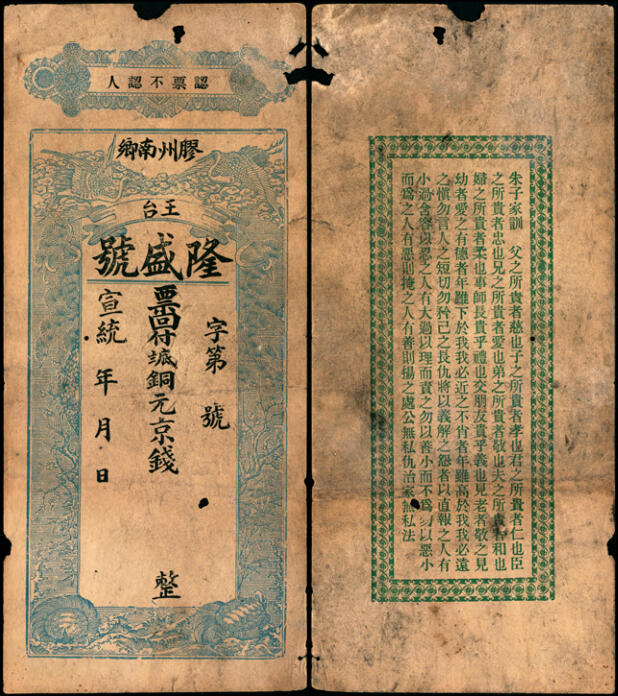 認票不認人
膠州南鄉
王台
隆盛號
字第 號
票回付銅元京錢 整
宣統 年 月 日
朱子家訓 父之所貴者慈也子之所貴者孝也君之所貴者仁也臣
之所貴者忠也兄之所貴者愛也弟之所貴者敬也夫之所貴者和也
婦之所貴者柔也事師長貴乎禮也交朋友貴乎義也見老者敬之見
幼者愛之有德者年雖下於我我必近之不肖者年雖高於我我必遠
之慎勿言人之短切勿矜己之長仇將以義解之怨者以直報之人有
小過含容以忍之人有大過以理而責之勿以善小而不爲勿以惡小
而爲之人有惡則掩之人有善則揚之處公無私仇治家無私法